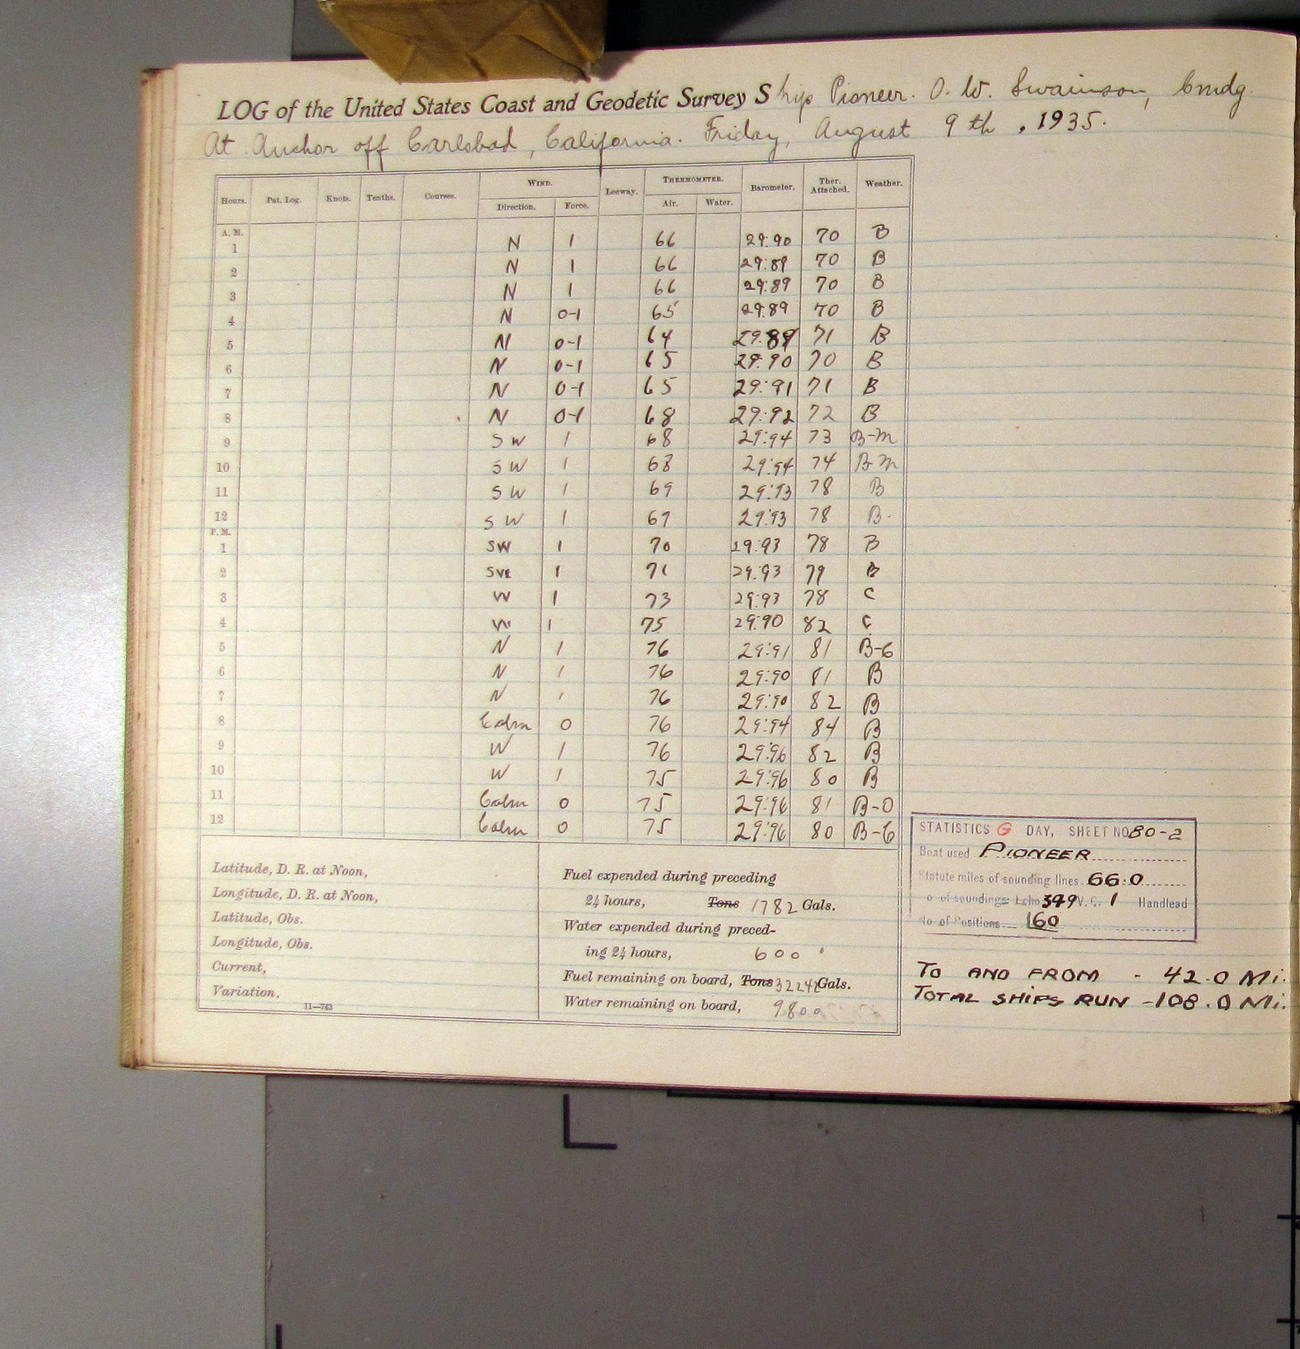 LOG of the United States Coast and Geodetic Survey Ship Pioneer. O. W. Swainson, Cmdg.
At Anchor off Carlsbad, California. Friday, August 9th, 1935.
Hours. Pat. Log. Knots. Tenths. Courses. WIND. Leeway. THERMOMETER. Barometer. Ther. Attached. Weather.
Direction. Force. Air. Water.
A. M.
1 N 1 66 29.90 70 B
2 N 1 66 29.89 70 B
3 N 1 66 29.89 70 B
4 N 0-1 65 29.89 70 B
5 N 0-1 64 29.89 71 B
6 N 0-1 65 29.90 70 B
7 N 0-1 65 29.91 71 B
8 N 0-1 68 29.92 72 B
9 SW 1 68 29.94 73 B-M
10 SW 1 68 29.94 74 B-M
11 SW 1 69 29.93 78 B
12 SW 1 69 29.93 78 B.
P. M.
1 SW 1 70 29.93 78 B
2 SW 1 71 29.93 79 B
3 W 1 73 29.93 78 C
4 W 1 75 29.90 82 C
5 N 1 76 29.91 81 B-C
6 N 1 76 29.90 81 B
7 N 1 76 29.90 82 B
8 Calm 0 76 29.94 84 B
9 W 1 76 29.96 82 B
10 W 1 75 29.96 80 B
11 Calm 0 75 29.96 81 B-0
12 Calm 0 75 29.96 80 B-C
Latitude, D. R. at Noon,
Longitude, D. R. at Noon,
Latitude, Obs.
Longitude, Obs.
Current,
Variation,
11—763
Fuel expended during preceding
24 hours, Tons 1782 Gals.
Water expended during preced-
ing 24 hours, 600 "
Fuel remaining on board, Tons Gals.
Water remaining on board, 9800
STATISTICS G DAY, SHEET NO. 80-2
Boat used PIONEER
Statute miles of sounding lines 66.0
o of soundings: Echo 349 V.C. 1 Handlead
No. of Positions 160
TO AND FROM - 42.0 Mi.
TOTAL SHIPS RUN - 108.0 Mi.